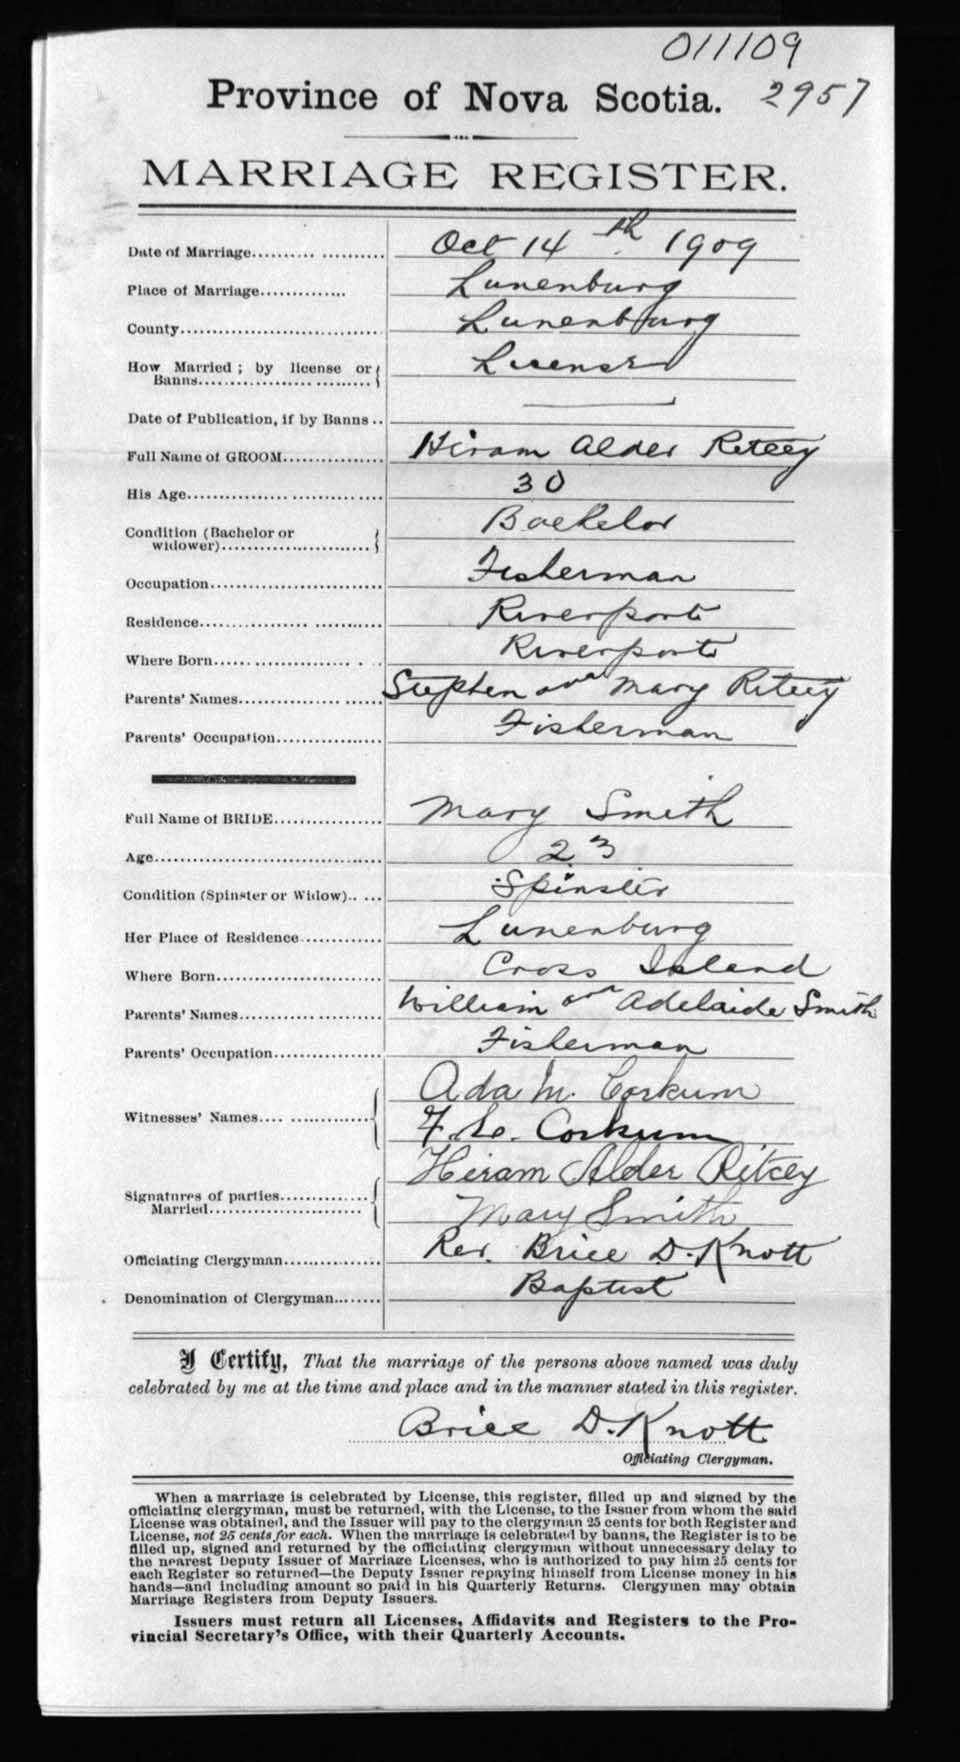 011109
Province of Nova Scotia. 2957
MARRIAGE REGISTER.
Date of Marriage.......... Oct 14th 1909
Place of Marriage............. Lunenburg
County............................. Lunenburg
How Married ; by license or
Banns.................. License
Date of Publication, if by Banns ..
Full Name of GROOM................ Hiram Alder Ritcey
His Age............................ 30
Condition (Bachelor or
widower)........................ Bachelor
Occupation............................ Fisherman
Residence............................ Riverport
Where Born...................... Riverport
Parents' Names..................... Stephen and Mary Ritcey
Parents' Occupation................. Fisherman
Full Name of BRIDE................. Mary Smith
Age................................... 23
Condition (Spinster or Widow)..... Spinster
Her Place of Residence............. Lunenburg
Where Born........................ Cross Island
Parents' Names..................... William and Adelaide Smith
Parents' Occupation................. Fisherman
Ada M. Corkum
Witnesses' Names.................
Corkum
Hiram Alder Ritcey
Signatures of parties..............
Married........................ Mary Smith
Officiating Clergyman............... Rev. Brice D. Knott
Denomination of Clergyman........ Baptist
I Certify, That the marriage of the persons above named was duly
celebrated by me at the time and place and in the manner stated in this register.
Brice D. Knott
Officiating Clergyman.
When a marriage is celebrated by License, this register, filled up and signed by the
officiating clergyman, must be returned, with the License, to the Issuer from whom the said
License was obtained, and the Issuer will pay to the clergyman 25 cents for both Register and
License, not 25 cents for each. When the marriage is celebrated by banns, the Register is to be
filled up, signed and returned by the officiating clergyman without unnecessary delay to
the nearest Deputy Issuer of Marriage Licenses, who is authorized to pay him 25 cents for
each Register so returned—the Deputy Issuer repaying himself from License money in his
hands—and including amount so paid in his Quarterly Returns. Clergymen may obtain
Marriage Registers from Deputy Issuers.
Issuers must return all Licenses, Affidavits and Registers to the Pro-
vincial Secretary's Office, with their Quarterly Accounts.